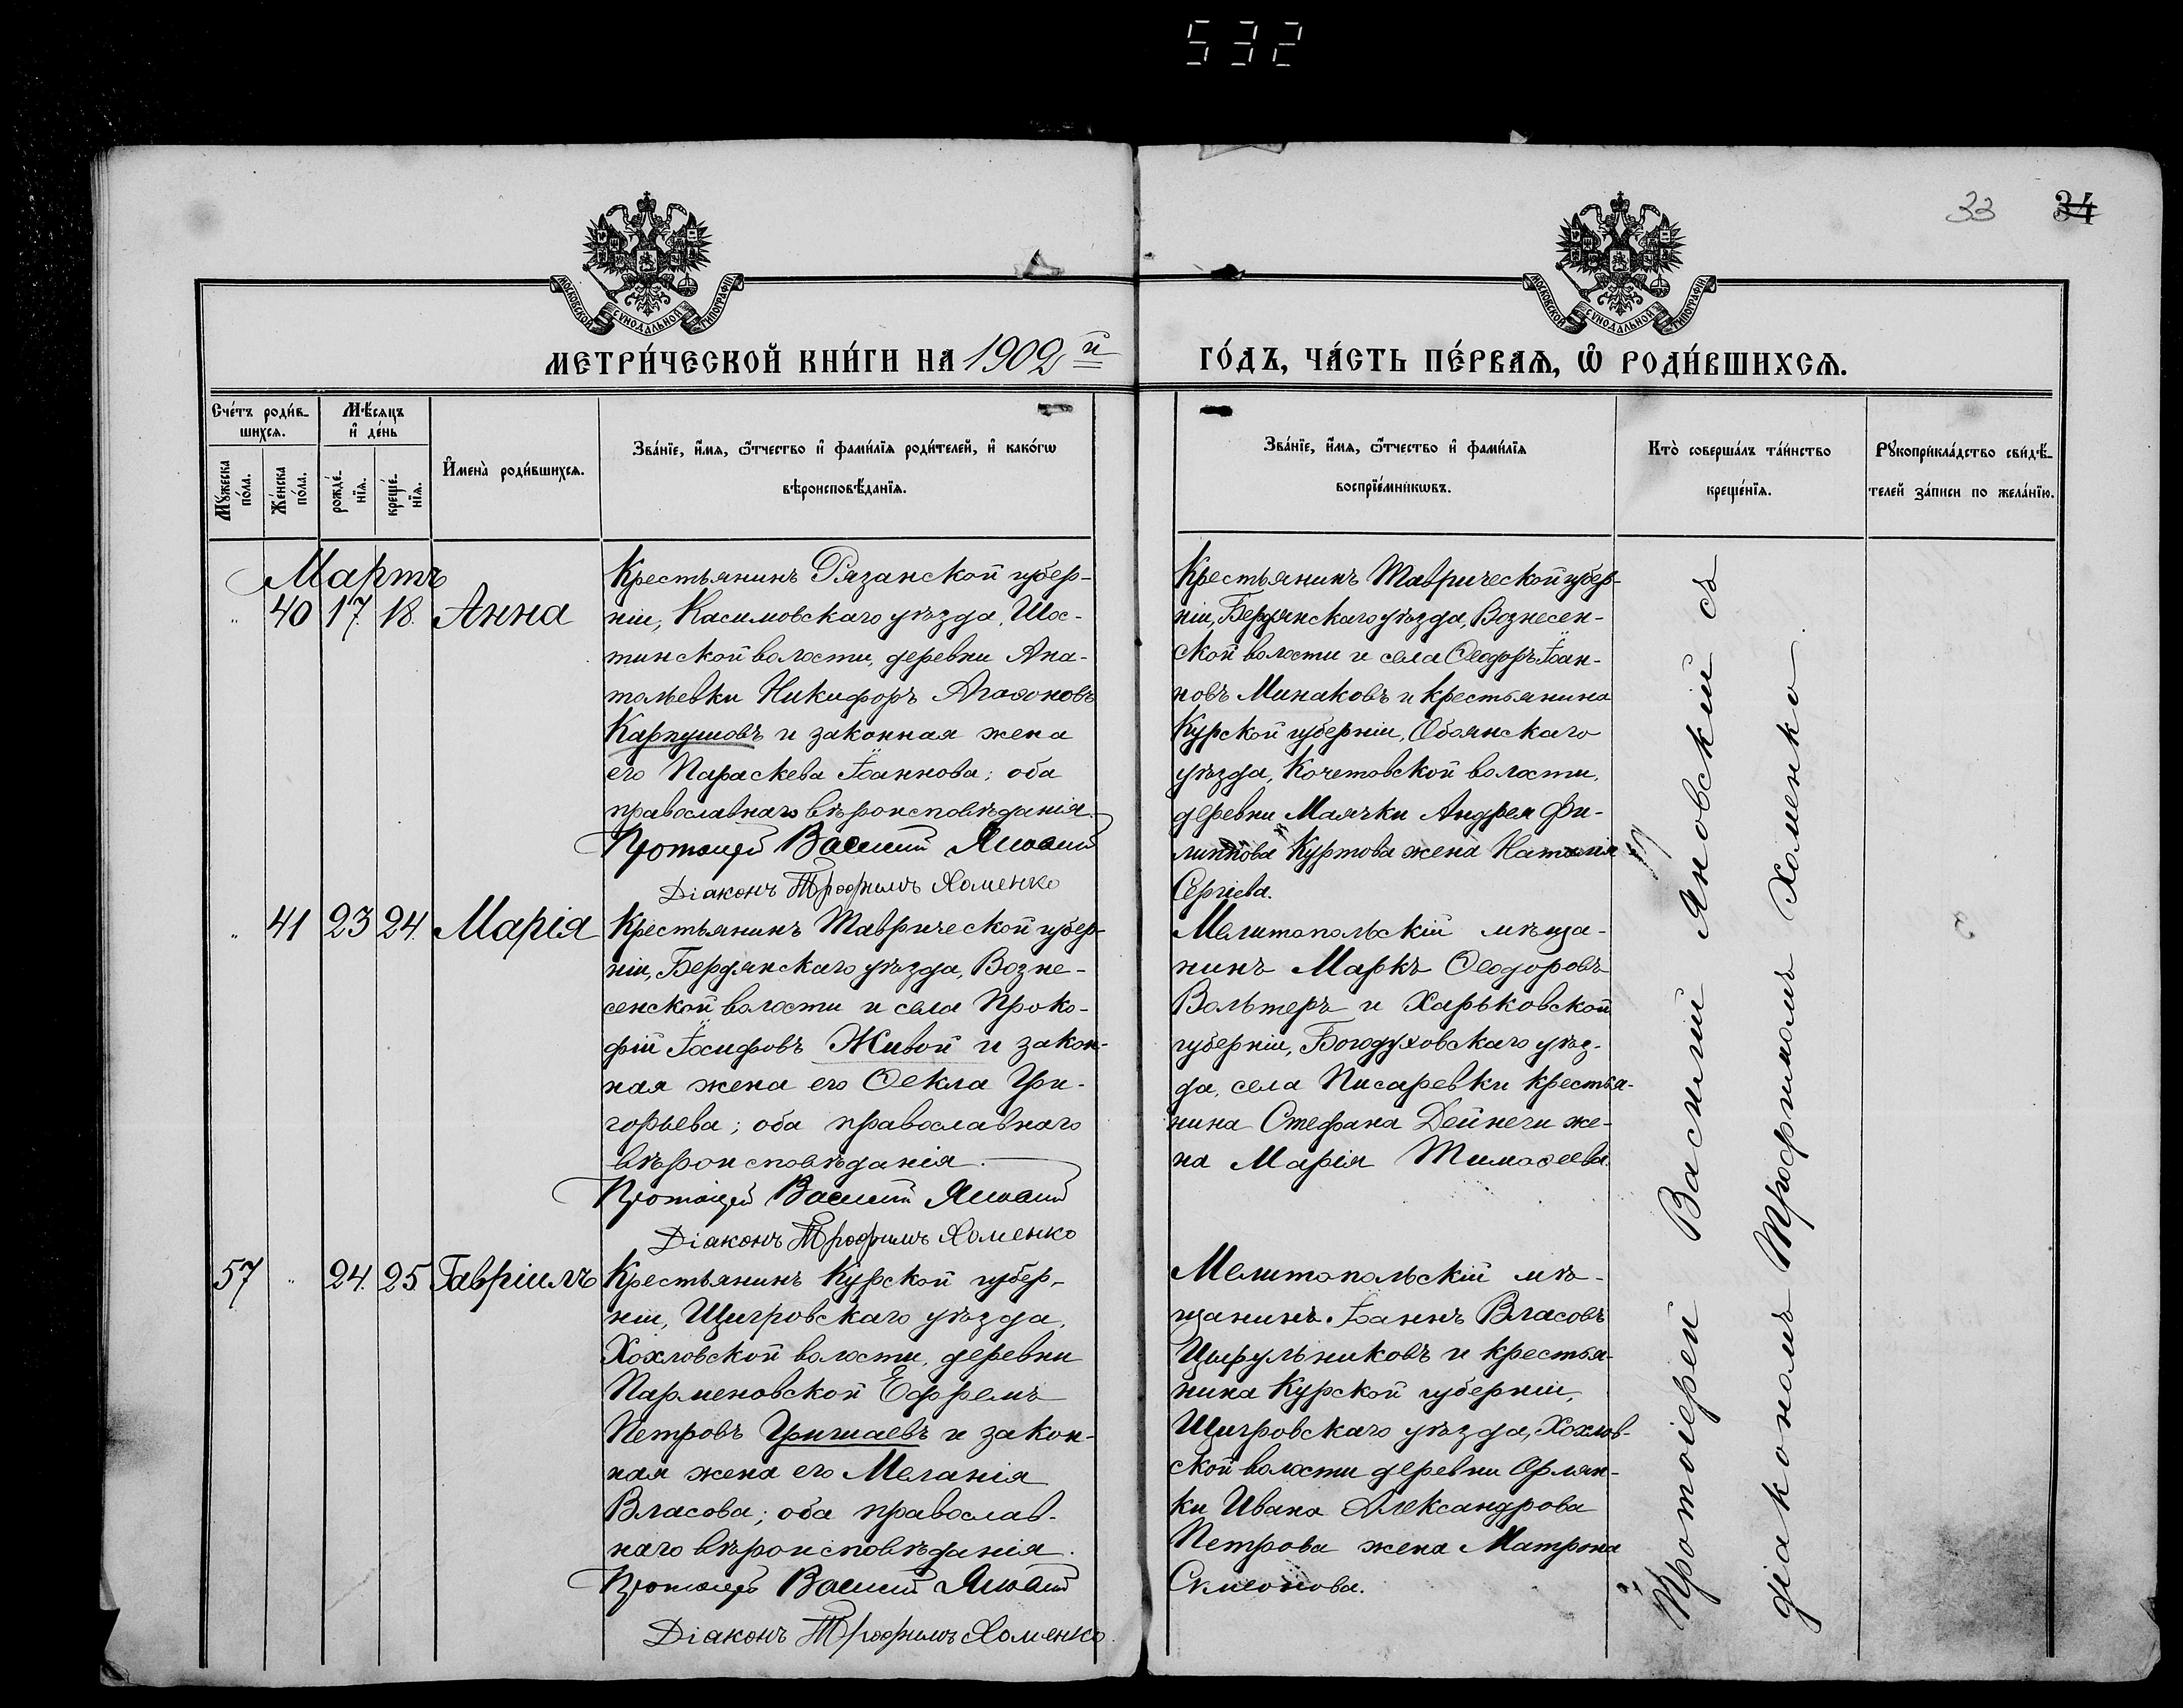 532
33 34
МОСКОВСКОЙ СѴНОДАЛЬНОЙ ТИПОГРАФІИ
МОСКОВСКОЙ СѴНОДАЛЬНОЙ ТИПОГРАФІИ
МЕТРИ́ЧЕСКОЙ КНИ́ГИ НА 1909 й
ГО́ДЪ, ЧА́СТЬ ПЕ́РВАѦ, Ѽ РОДИ́ВШИХСѦ.
Сче́тъ роди́в-
шихсѧ.
Мꙋ́жеска по́ла.
Же́нска по́ла.
Мѣ́сѧцъ
и҆ де́нь
рожде́-
нїѧ.
креще́-
нїѧ.
И҆мена̀ роди́вшихсѧ.
Зва́нїе, и҆́мѧ, ѻ҆́тчество и҆ фами́лїѧ роди́телей, и҆ како́гѡ
вѣроисповѣ́данїѧ.
Зва́нїе, и҆́мѧ, ѻ҆́тчество и҆ фами́лїѧ
воспрїе́мникѡвъ.
Кто̀ соверша́лъ та́инство
креще́нїѧ.
Рꙋкоприкла́дство свидѣ́-
телей за́писи по жела́нїю.
Мартъ
" 40 17. 18. Анна
Крестьянинъ Рязанской губер-
ніи, Касимовскаго уѣзда, Шос-
тинской волости, деревни Ана-
тольевки Никифоръ Агаѳоновъ
Карпушовъ и законная жена
его Параскева Іоаннова; оба
православнаго вѣроисповѣданія.
Протоіерей Василій Яновскій
Діаконъ Трофимъ Хоменко
Крестьянинъ Таврической губер-
ніи, Бердянскаго уѣзда, Вознесен-
ской волости и села Ѳеодоръ Іоан-
новъ Минаковъ и крестьянина
Курской губерніи, Обоянскаго
уѣзда, Кочетовской волости,
деревни Маячки Андрея Фи-
липпова Куртова жена Наталія
Сергіева.
" 41 23 24. Марія
Крестьянинъ Таврической губер-
ніи, Бердянскаго уѣзда, Возне-
сенской волости и села Проко-
фій Іосифовъ Живой и закон-
ная жена его Ѳекла Гри-
горьева; оба православнаго
вѣроисповѣданія.
Протоіерей Василій Яновскій
Діаконъ Трофимъ Хоменко
Мелитопольскій мѣща-
нинъ Маркъ Ѳеодоровъ
Вольтеръ и Харьковской
губерніи, Богодуховскаго уѣз-
да, села Писаревки крестья-
нина Стефана Дейнеги же-
на Марія Тимоѳеева.
57 " 24. 25. Гавріилъ
Крестьянинъ Курской губер-
ніи, Щигровскаго уѣзда,
Хохловской волости, деревни
Парменовской Ефремъ
Петровъ Гришаевъ и закон-
ная жена его Меланія
Власова; оба православ-
наго вѣроисповѣданія.
Протоіерей Василій Яновскій
Діаконъ Трофимъ Хоменко.
Мелитопольскій мѣ-
щанинъ Іоаннъ Власовъ
Цырульниковъ и крестья-
нина Курской губерніи,
Щигровскаго уѣзда, Хохлов-
ской волости деревни Орлян-
ки Ивана Александрова
Петрова жена Матрона
Симеонова.
Протоіерей Василій Яновскій съ
діакономъ Трофимомъ Хоменко.